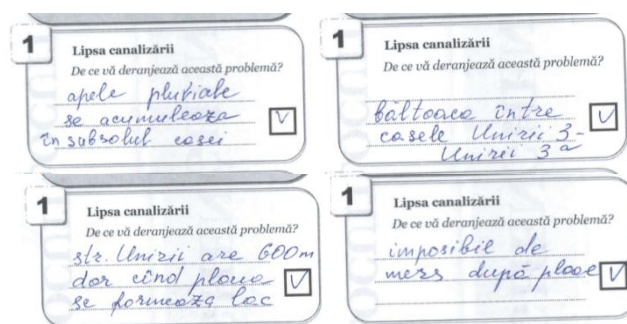 1
Lipsa canalizării
De ce vă deranjează această problemă?
apele pluviale
se acumuleaza
în subsolul casei
V
1
Lipsa canalizării
De ce vă deranjează această problemă?
băltoaca între
casele Unirii 3-
Unirii 3a
V
1
Lipsa canalizării
De ce vă deranjează această problemă?
str. Unirii are 600m
dar cînd ploua
se formeaza lac
V
1
Lipsa canalizării
De ce vă deranjează această problemă?
imposibil de
mers după ploae
V